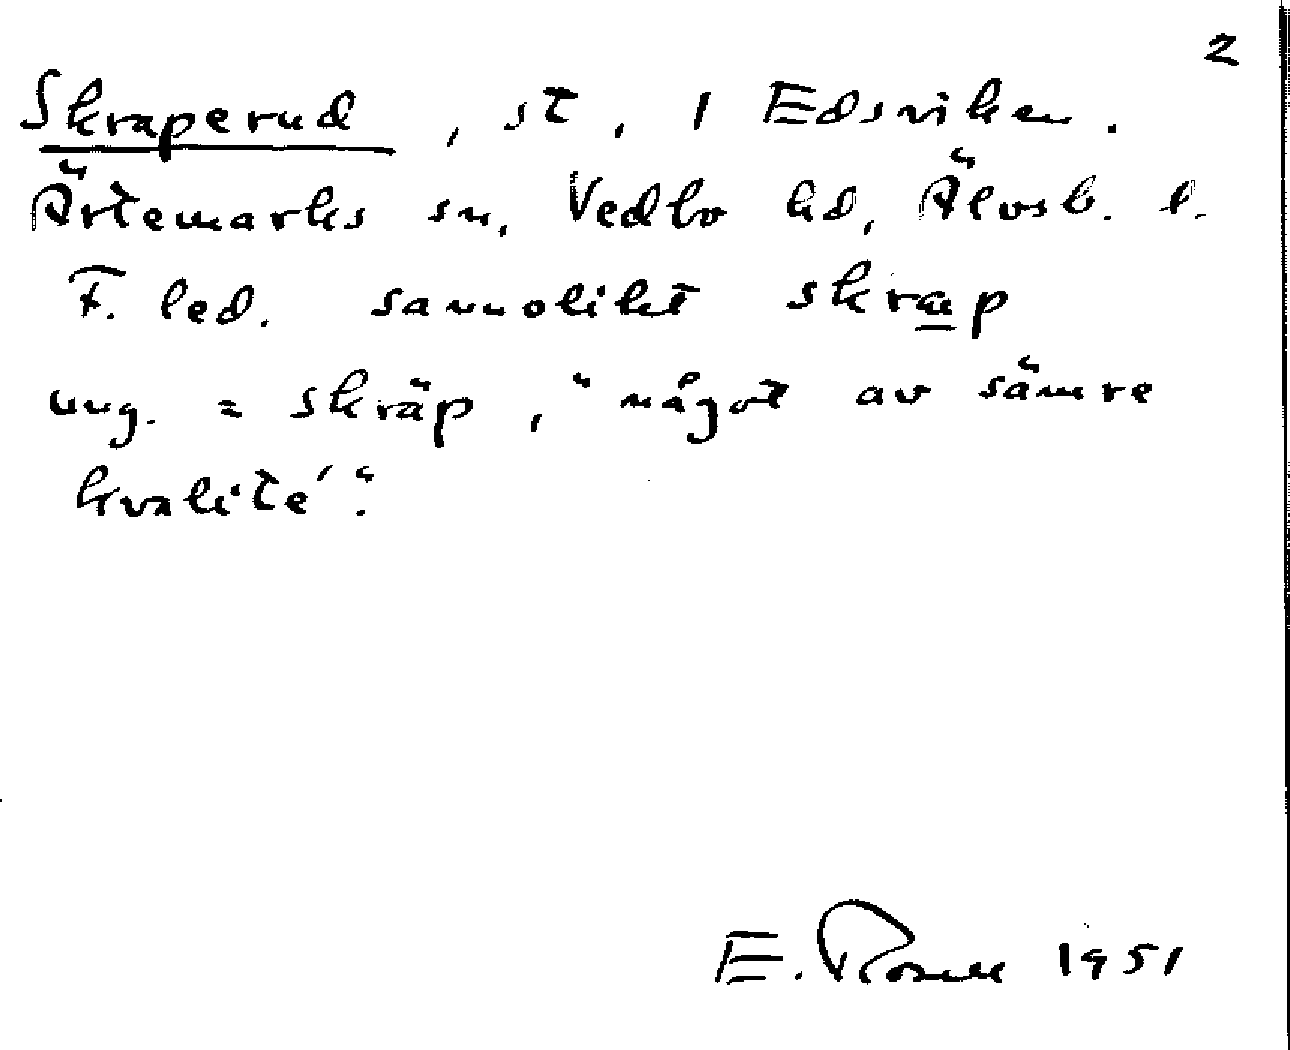 2
Skraperud, st, 1 Edsviken.
Ärtemarks sn, Vedbo hd, Älvsb. l.
F. led. sannolikt skrap
ung. = skräp, "något av sämre
kvalité".
E. 1951